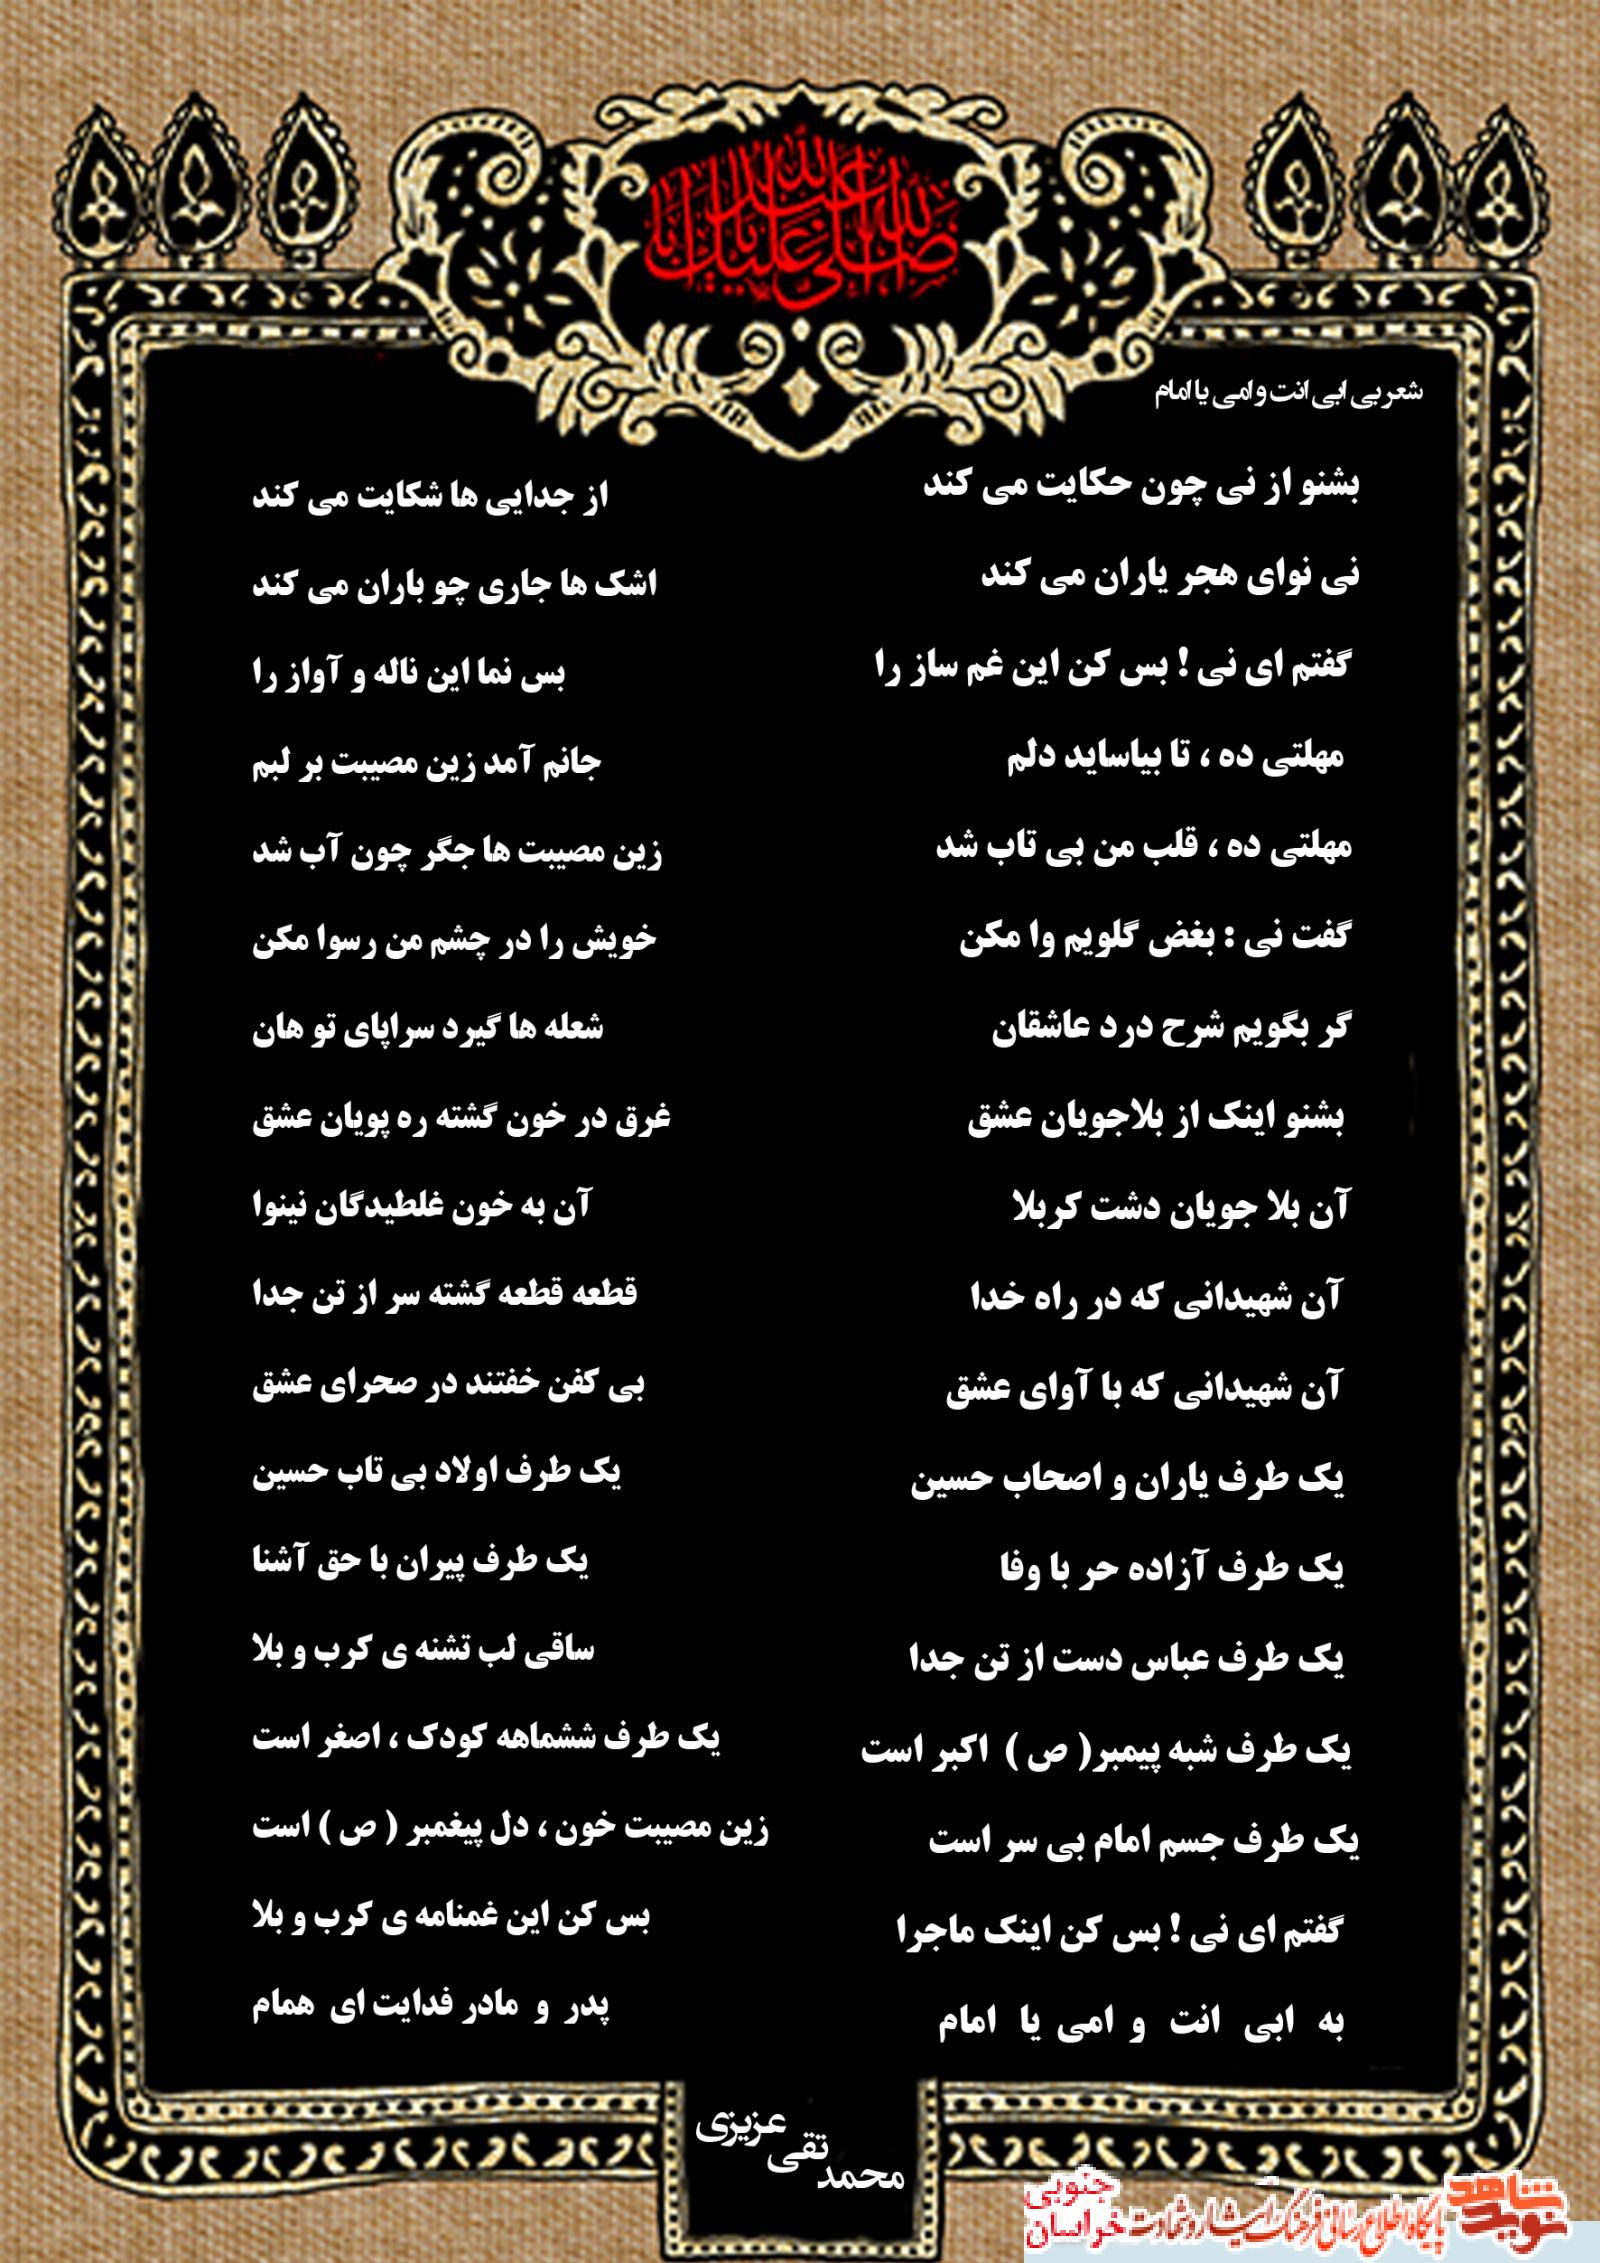 صلی الله علیک یا اباعبدالله
شعر بی ابی انت و امی یا امام
بشنو از نی چون حکایت می کند
از جدایی ها شکایت می کند
نی نوای هجر یاران می کند
اشک ها جاری چو باران می کند
گفتم ای نی ! بس کن این غم ساز را
بس نما این ناله و آواز را
مهلتی ده ، تا بیاساید دلم
جانم آمد زین مصیبت بر لبم
مهلتی ده ، قلب من بی تاب شد
زین مصیبت ها جگر چون آب شد
گفت نی : بغض گلویم وا مکن
خویش را در چشم من رسوا مکن
گر بگویم شرح درد عاشقان
شعله ها گیرد سراپای تو هان
بشنو اینک از بلاجویان عشق
غرق در خون گشته ره پویان عشق
آن بلا جویان دشت کربلا
آن به خون غلطیدگان نینوا
آن شهیدانی که در راه خدا
قطعه قطعه گشته سر از تن جدا
آن شهیدانی که با آوای عشق
بی کفن خفتند در صحرای عشق
یک طرف یاران و اصحاب حسین
یک طرف اولاد بی تاب حسین
یک طرف آزاده حر با وفا
یک طرف پیران با حق آشنا
یک طرف عباس دست از تن جدا
ساقی لب تشنه ی کرب و بلا
یک طرف شبه پیمبر( ص ) اکبر است
یک طرف ششماهه کودک ، اصغر است
یک طرف جسم امام بی سر است
زین مصیبت خون ، دل پیغمبر ( ص ) است
گفتم ای نی ! بس کن اینک ماجرا
بس کن این غمنامه ی کرب و بلا
به ابی انت و امی یا امام
پدر و مادر فدایت ای همام
محمد تقی عزیزی
نوید شاهد
پایگاه اطلاع رسانی فرهنگ ایثار و شهادت
خراسان جنوبی